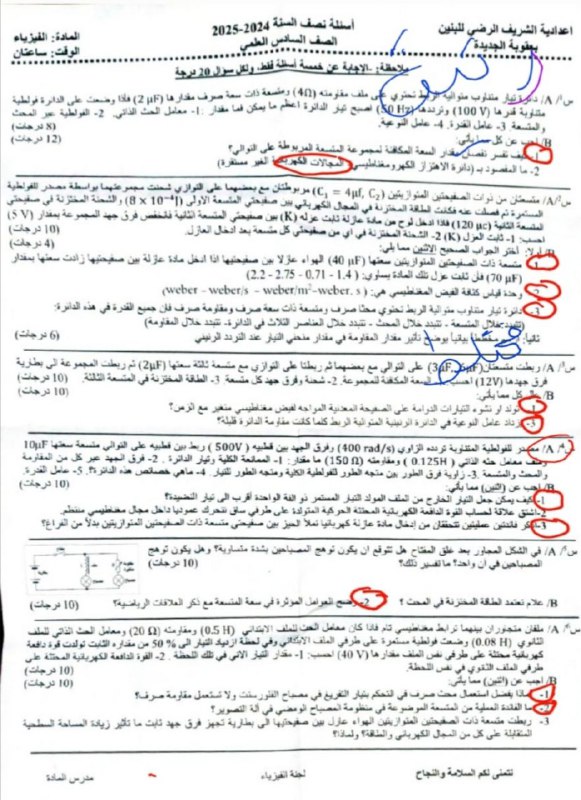 اعدادية الشريف الرضي للبنين
بعقوبة الجديدة
أسئلة نصف السنة 2024-2025
الصف السادس العلمي
المادة: الفيزياء
الوقت: ساعتان
ملاحظة: -الاجابة عن خمسة أسئلة فقط، ولكل سؤال 20 درجة
س١/ A/ دائرة تيار متناوب متوالية الربط تحتوي على ملف مقاومته (4Ω) ومتسعة ذات سعة صرف مقدارها (2 μF) فإذا وضعت على الدائرة فولطية
متناوبة قدرها (100 V) وترددها (50 Hz) اصبح تيار الدائرة اعظم ما يمكن فما مقدار :1- معامل الحث الذاتي. 2- الفولطية عبر المحث
والمتسعة. 3- عامل القدرة. 4- عامل النوعية. (8 درجات)
B/ أجب عن كل مما يأتي: (12 درجات)
1- كيف تفسر نقصان مقدار السعة المكافئة لمجموعة المتسعة المربوطة على التوالي؟
2- ما المقصود بـ (دائرة الاهتزاز الكهرومغناطيسي، المجالات الكهربائية الغير مستقرة)
س٢/ A/ متسعتان من ذوات الصفيحتين المتوازيتين (C₁ = 4μF, C₂) مربوطتان مع بعضهما على التوازي شحنت مجموعتهما بواسطة مصدر للفولطية
المستمرة ثم فصلت عنه فكانت الطاقة المختزنة في المجال الكهربائي بين صفيحتي المتسعة الأولى (8 × 10⁻⁴J) والشحنة المختزنة في صفيحتي
المتسعة الثانية (120 μc) فاذا ادخل لوح من مادة عازلة ثابت عزله (K) بين صفيحتي المتسعة الثانية فانخفض فرق جهد المجموعة بمقدار (5 V)
احسب: 1- ثابت العزل (K) 2- الشحنة المختزنة في اي من صفيحتي كل متسعة بعد ادخال العازل. (10 درجات)
B/ أولا: أختر الجواب الصحيح لاثنين مما يلي: (4 درجة)
1- متسعة ذات الصفيحتين المتوازيتين سعتها (40 μF) الهواء عازلا بين صفيحتيها اذا ادخل مادة عازلة بين صفيحتيها زادت سعتها بمقدار
(70 μF) فأن ثابت عزل تلك المادة يساوي: (1.4 - 0.71 - 2.75 - 2.2)
2- وحدة قياس كثافة الفيض المغناطيسي هي: (weber – weber/s – weber/m²–weber. s)
3- دائرة تيار متناوب متوالية الربط تحتوي محثا صرف ومتسعة ذات سعة صرف ومقاومة صرف فأن جميع القدرة في هذه الدائرة:
(تتبدد خلال المتسعة - تتبدد خلال المحث - تتبدد خلال العناصر الثلاث في الدائرة- تتبدد خلال المقاومة)
ثانيا: مخططا بيانيا يوضح تأثير مقدار المقاومة في مقدار منحني التيار عند التردد الرنيني (6 درجات)
س٣/ A/ ربطت متسعتان على التوالي مع بعضهما ثم ربطتا على التوازي مع متسعة ثالثة سعتها (2μF) ثم ربطت المجموعة الى بطارية
فرق جهدها (12V) احسب: السعة المكافئة للمجموعة. 2- شحنة وفرق جهد كل متسعة 3- الطاقة المختزنة في المتسعة الثالثة. (10 درجات)
B/ علل كل مما يأتي: (10 درجات)
1- تولد او نشوء التيارات الدوامة على الصحيفة المعدنية المواجه لفيض مغناطيسي متغير مع الزمن؟
3- يزداد عامل النوعية في الدائرة الرنينية المتوالية الربط كلما كانت مقاومة الدائرة قليلة؟
س٤/ A/ مصدر للفولطية المتناوبة تردده الزاوي (400 rad/s) وفرق الجهد بين قطبيه (500V) ربط بين قطبيه على التوالي متسعة سعتها 10μF
وملف معامل حثه الذاتي (0.125H) ومقاومته (150 Ω) ما مقدار: 1- الممانعة الكلية وتيار الدائرة. 2- فرق الجهد عبر كل من المقاومة
والمحث والمتسعة. 3- زاوية فرق الطور بين متجه الطور للفولطية الكلية ومتجه الطور للتيار. 4- ماهي خصائص هذه الدائرة؟. 5- عامل القدرة.
B/ أجب عن (اثنين) مما يأتي: (10 درجات)
1- كيف يمكن جعل التيار الخارج من الملف المولد التيار المستمر ذو الفة الواحدة أقرب الى تيار النضيدة؟
2- اشتق علاقة لحساب القوة الدافعة الكهربائية المحتثة الحركية المتولدة على طرفي ساق تتحرك عموديا داخل مجال مغناطيسي منتظم.
3- اذكر فائدتين عمليتين تتحققان من إدخال مادة عازلة كهربائيا تملأ الحيز بين صفيحتي متسعة ذات الصفيحتين المتوازيتين بدلاً من الفراغ؟
س٥/ A/ في الشكل المجاور بعد غلق المفتاح هل تتوقع ان يكون توهج المصباحين بشدة متساوية؟ وهل يكون توهج
المصباحين في ان واحد؟ ما تفسير ذلك؟ (10 درجات)
B/ علام تعتمد الطاقة المختزنة في المحث ؟ 2- وضح العوامل المؤثرة في سعة المتسعة مع ذكر العلاقات الرياضية؟ (10 درجات)
س٦/ A/ ملفان متجاوران بينهما ترابط مغناطيسي تام فاذا كان معامل الحث الذاتي للملف الابتدائي (0.5 H) ومقاومته (20 Ω) ومعامل الحث الذاتي للملف
الثانوي (0.08 H) وضعت فولطية مستمرة على طرفي الملف الابتدائي وفي لحظة ازدياد التيار الى 50 % من مقداره الثابت تولدت قوة دافعة
كهربائية محتثة على طرفي نفس الملف مقدارها (40 V) احسب: 1- مقدار التيار الاني في تلك اللحظة. 2- القوة الدافعة الكهربائية المحتثة على
طرفي الملف الثانوي في نفس اللحظة. (10 درجات)
B/ أجب عن (اثنين) مما يأتي: (10 درجات)
1- لماذا يفضل استعمال محث صرف في التحكم بتيار التفريغ في مصباح الفلورسنت ولا تستعمل مقاومة صرف؟
2- ما الفائدة العملية من المتسعة الموضوعة في منظومة المصباح الومضي في آلة التصوير؟
3- ربطت متسعة ذات الصفيحتين المتوازيتين الهواء عازل بين صفيحتيها الى بطارية تجهز فرق جهد ثابت ما تأثير زيادة المساحة السطحية
المتقابلة على كل من المجال الكهربائي والطاقة؟ ولماذا؟
نتمنى لكم السلامة والنجاح
لجنة الفيزياء
مدرس المادة